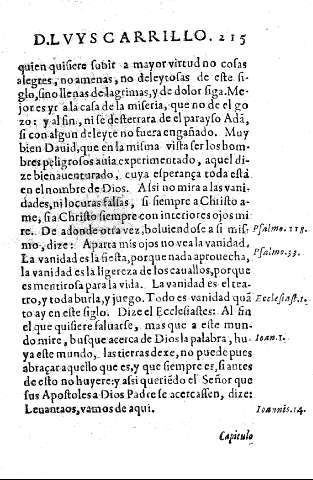 D. LVYS CARRILLO. 215
quien quisiere subir a mayor virtud no cosas
alegres, no amenas, no deleytosas de este si-
glo, sino llenas de lagrimas, y de dolor siga. Me-
jor es yr a la casa de la miseria, que no de el go
zo: y al fin, ni se desterrara de el parayso Adã,
si con algun deleyte no fuera engañado. Muy
bien Dauid, que en la misma vista ser los hom-
bres peligrosos auia experimentado, aquel di-
ze bienauenturado, cuya esperança toda està
en el nombre de Dios. Assi no mira a las vani-
dades, ni locuras falsas, si siempre a Christo a-
me, si a Christo siempre con interiores ojos mi
re. De adonde otra vez, boluiendose a si mis- Psalmo. 118.
mo, dize: Aparta mis ojos no vea la vanidad.
La vanidad es la fiesta, porque nada aprouecha, Psalmo. 33.
la vanidad es la ligereza de los cauallos, porque
es mentirosa para la vida. La vanidad es el tea-
tro, y toda burla, y juego. Todo es vanidad quã Ecclesiast. 1.
to ay en este siglo. Dize el Ecclesiastes: Al fin
el que quisiere saluarse, mas que a este mun-
do mire, busque acerca de Dios la palabra, hu- Ioan. 1.
ya este mundo, las tierras dexe, no puede pues
abraçar aquello que es, y que siempre es, si antes
de esto no huyere: y assi queriẽdo el Señor que
sus Apostoles a Dios Padre se acercassen, dize:
Leuantaos, vamos de aqui. Ioannis. 14.
Capitulo